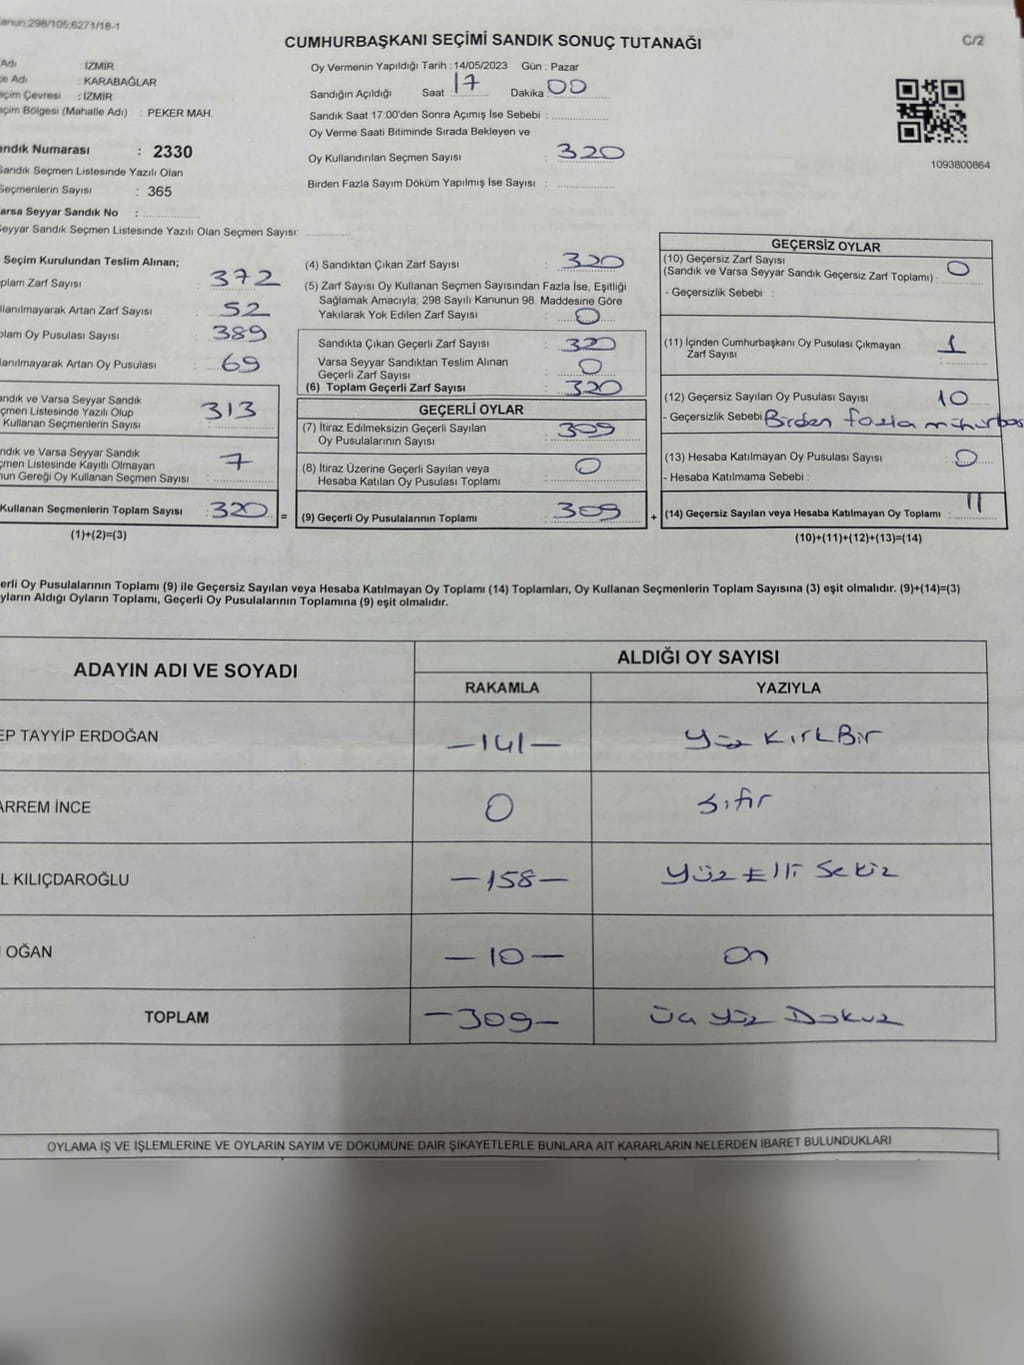 anun:298/105;6271/18-1
C/2
CUMHURBAŞKANI SEÇİMİ SANDIK SONUÇ TUTANAĞI
Adı : İZMİR
çe Adı : KARABAĞLAR
eçim Çevresi : İZMİR
eçim Bölgesi (Mahalle Adı) : PEKER MAH.
andık Numarası : 2330
Sandık Seçmen Listesinde Yazılı Olan
Seçmenlerin Sayısı : 365
Varsa Seyyar Sandık No :
Seyyar Sandık Seçmen Listesinde Yazılı Olan Seçmen Sayısı:
Oy Vermenin Yapıldığı Tarih : 14/05/2023 Gün : Pazar
Sandığın Açıldığı Saat 17 Dakika 00
Sandık Saat 17:00'den Sonra Açımış İse Sebebi :
Oy Verme Saati Bitiminde Sırada Bekleyen ve
Oy Kullandırılan Seçmen Sayısı : 320
Birden Fazla Sayım Döküm Yapılmış İse Sayısı :
1093800864
Seçim Kurulundan Teslim Alınan;
plam Zarf Sayısı : 372
llanılmayarak Artan Zarf Sayısı : 52
plam Oy Pusulası Sayısı : 389
lanılmayarak Artan Oy Pusulası : 69
andık ve Varsa Seyyar Sandık
çmen Listesinde Yazılı Olup
Kullanan Seçmenlerin Sayısı : 313
ndık ve Varsa Seyyar Sandık
çmen Listesinde Kayıtlı Olmayan
nun Gereği Oy Kullanan Seçmen Sayısı : 7
Kullanan Seçmenlerin Toplam Sayısı : 320 =
(1)+(2)=(3)
(4) Sandıktan Çıkan Zarf Sayısı : 320
(5) Zarf Sayısı Oy Kullanan Seçmen Sayısından Fazla İse, Eşitliği
Sağlamak Amacıyla; 298 Sayılı Kanunun 98. Maddesine Göre
Yakılarak Yok Edilen Zarf Sayısı : 0
Sandıkta Çıkan Geçerli Zarf Sayısı : 320
Varsa Seyyar Sandıktan Teslim Alınan
Geçerli Zarf Sayısı : 0
(6) Toplam Geçerli Zarf Sayısı : 320
GEÇERLİ OYLAR
(7) İtiraz Edilmeksizin Geçerli Sayılan
Oy Pusulalarının Sayısı : 309
(8) İtiraz Üzerine Geçerli Sayılan veya
Hesaba Katılan Oy Pusulası Toplamı : 0
(9) Geçerli Oy Pusulalarının Toplamı : 309 +
GEÇERSİZ OYLAR
(10) Geçersiz Zarf Sayısı
(Sandık ve Varsa Seyyar Sandık Geçersiz Zarf Toplamı) : 0
- Geçersizlik Sebebi :
(11) İçinden Cumhurbaşkanı Oy Pusulası Çıkmayan
Zarf Sayısı : 1
(12) Geçersiz Sayılan Oy Pusulası Sayısı : 10
- Geçersizlik Sebebi Birden fazla mühürbas
(13) Hesaba Katılmayan Oy Pusulası Sayısı : 0
- Hesaba Katılmama Sebebi :
(14) Geçersiz Sayılan veya Hesaba Katılmayan Oy Toplamı : 11
(10)+(11)+(12)+(13)=(14)
erli Oy Pusulalarının Toplamı (9) ile Geçersiz Sayılan veya Hesaba Katılmayan Oy Toplamı (14) Toplamları, Oy Kullanan Seçmenlerin Toplam Sayısına (3) eşit olmalıdır. (9)+(14)=(3)
yların Aldığı Oyların Toplamı, Geçerli Oy Pusulalarının Toplamına (9) eşit olmalıdır.
ADAYIN ADI VE SOYADI ALDIĞI OY SAYISI
RAKAMLA YAZIYLA
EP TAYYİP ERDOĞAN —141— Yüz Kırk Bir
ARREM İNCE 0 Sıfır
L KILIÇDAROĞLU —158— Yüz Elli Sekiz
OĞAN —10— On
TOPLAM —309— Üç Yüz Dokuz
OYLAMA İŞ VE İŞLEMLERİNE VE OYLARIN SAYIM VE DÖKÜMÜNE DAİR ŞİKAYETLERLE BUNLARA AİT KARARLARIN NELERDEN İBARET BULUNDUKLARI